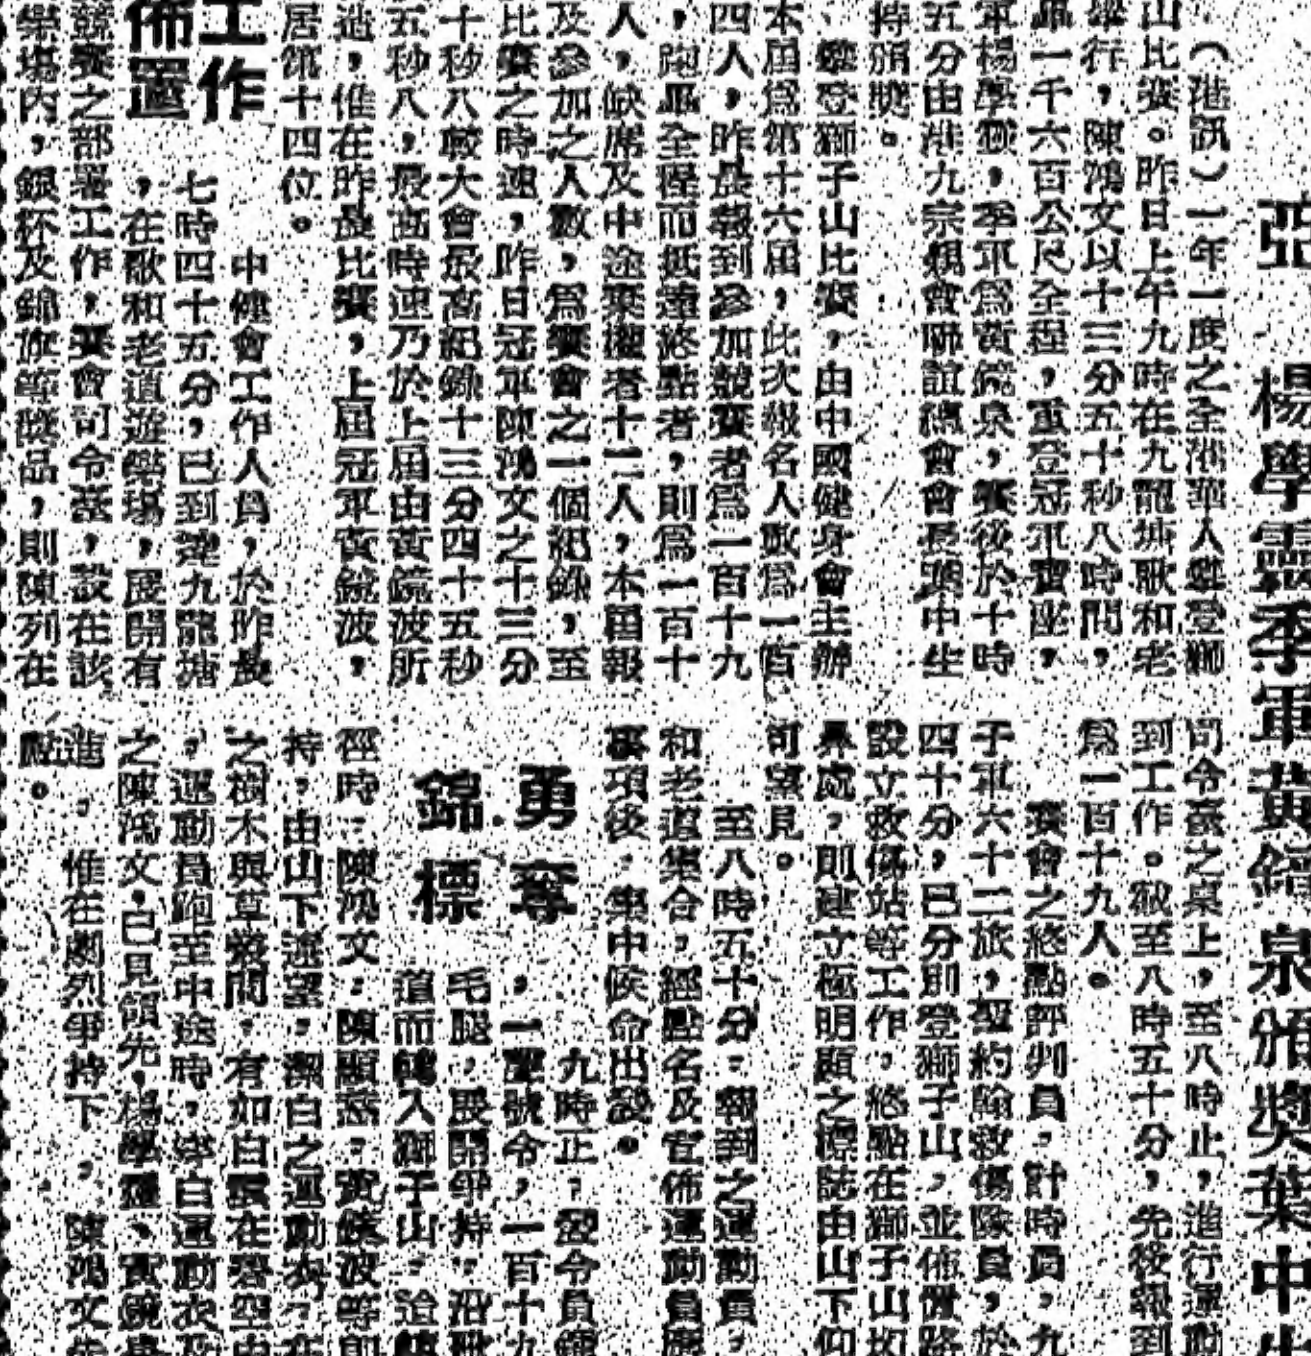 亞　楊學靈季軍黃鏡泉頒獎葉中生
（港訊）一年一度之全港華人攀登獅
山比賽。昨日上午九時在九龍塘歌和老
舉行，陳鴻文以十三分五十秒八時間，
一千六百公尺全程，重登冠軍寶座，
軍楊學靈，季軍為黃鏡泉，賽後於十時
五分由港九宗親會聯誼總會會長葉中生
持頒獎。
攀登獅子山比賽，由中國健身會主辦
本屆為第十六屆，此次報名人數為一百
四人，昨晨報到參加競賽者為一百十九
，跑畢全程而抵達終點者，則為一百十
人，缺席及中途棄權者十二人，本屆報
及參加之人數，為賽會之一個紀錄，至
比賽之時速，昨日冠軍陳鴻文之十三分
十秒八較大會最高紀錄十三分四十五秒
五秒八，最高時速乃於上屆由黃鏡波所
造，惟在昨晨比賽，上屆冠軍黃鏡波，
居第十四位。
工作
佈置
中健會工作人員，於昨晨
七時四十五分，已到達九龍塘
，在歌和老道遊樂場，展開有
競賽之部署工作，賽會司令臺，設在該
樂場內，銀杯及錦旗等獎品，則陳列在
司令臺之桌上，至八時止，進行運動
到工作。截至八時五十分，先後報到
為一百十九人。
賽會之終點評判員，計時員，九
子軍六十二旅，聖約翰救傷隊員，於
四十分，已分別登獅子山，並佈置路
設立救傷站等工作，終點在獅子山坳
鼻處，則建立極明顯之標誌由山下仰
可望見。
至八時五十分，報到之運動員，
和老道集合，經點名及宣佈運動員應
事項後，集中候命出發。
勇奪
錦標
九時正，發令員鍾
，一聲號令，一百十九
毛腿，展開爭持，沿歌
道而轉入獅子山，
徑時，陳鴻文，陳顯基，黃鏡波等即
持，由山下遠望，潔白之運動衣，在
之樹木與草叢間，有如白鷺在碧空中
，運動員跑至中途時，潔白運動衣及
之陳鴻文，已見領先，楊學靈、黃鏡泉
進，惟在劇烈爭持下，陳鴻文先
點。